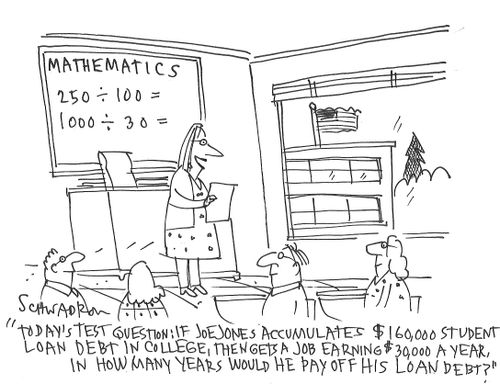 MATHEMATICS
250 ÷ 100 =
1000 ÷ 30 =
SCHWADRON
"TODAY'S TEST QUESTION: IF JOE JONES ACCUMULATES $160,000 STUDENT
LOAN DEBT IN COLLEGE, THEN GETS A JOB EARNING $30,000 A YEAR,
IN HOW MANY YEARS WOULD HE PAY OFF HIS LOAN DEBT?"